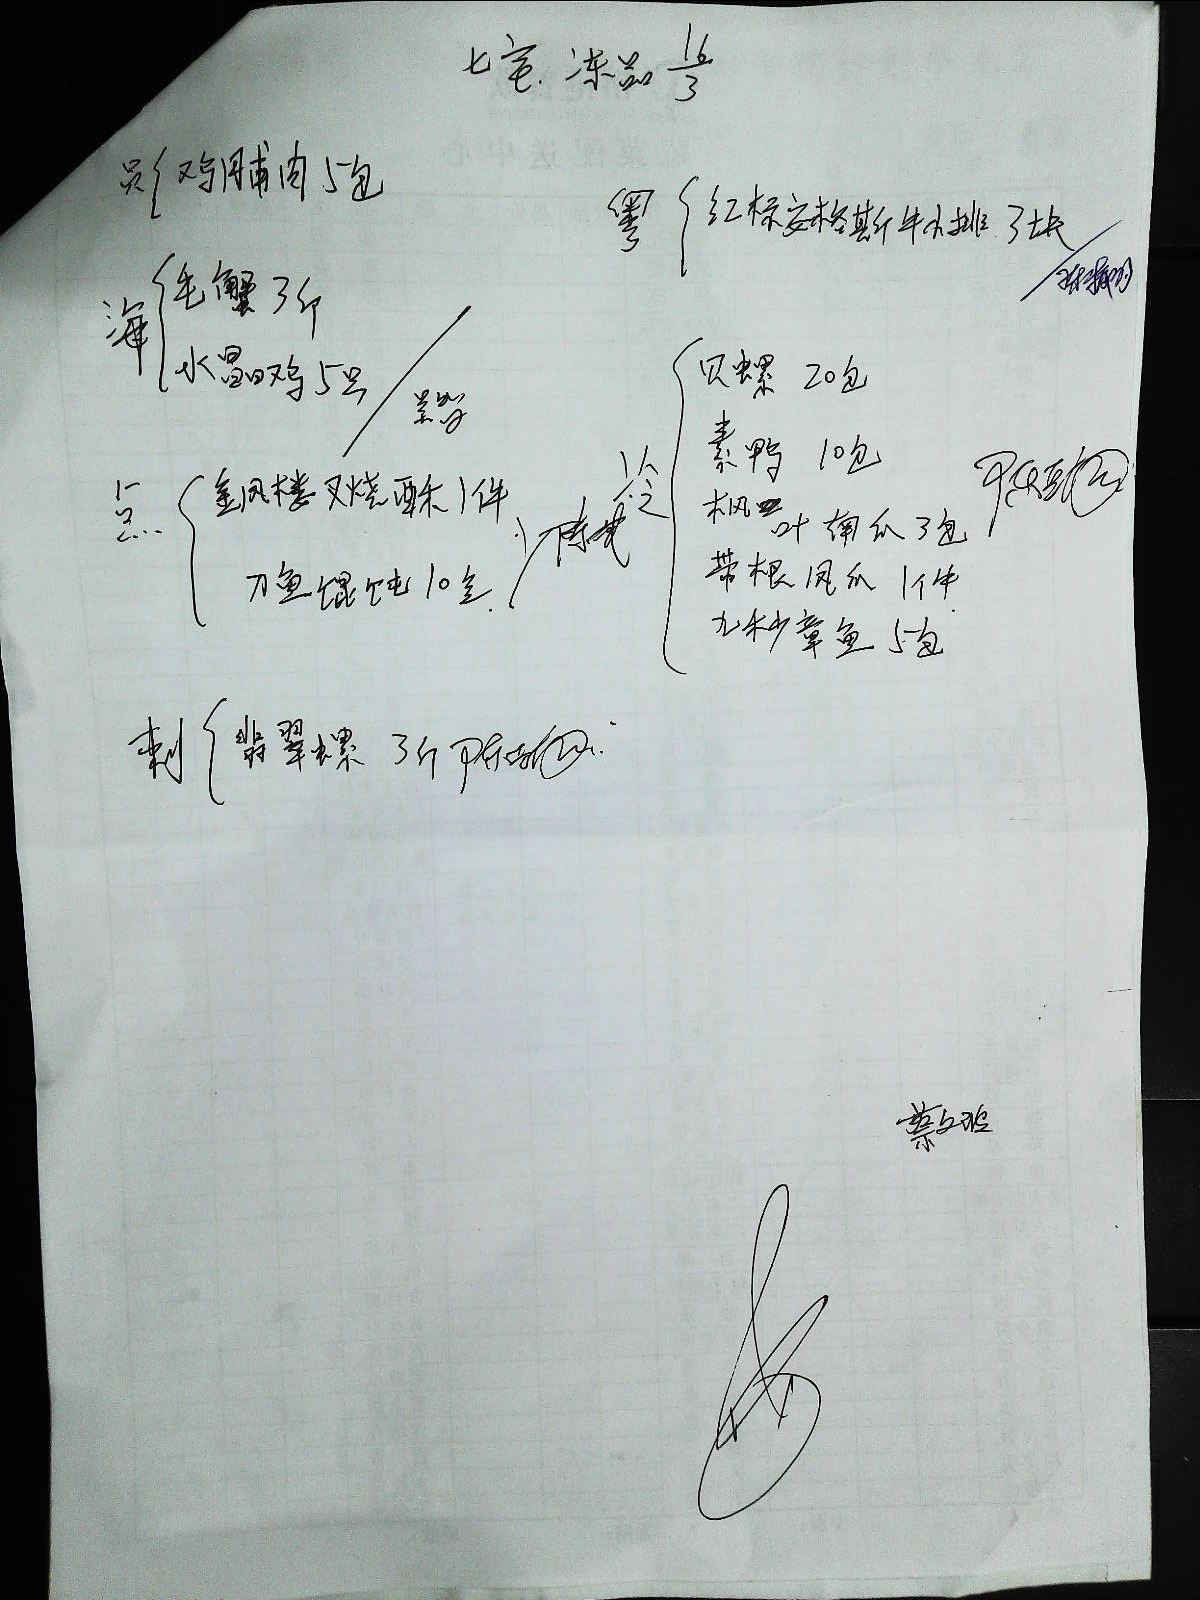 七宅. 冻品 16/3
鸡脯肉 5包
海
毛蟹 3斤
水晶鸡 5只
点
金凤楼叉烧酥 1件
刀鱼馄饨 10包
刺
翡翠螺 3斤
粤
红标安格斯牛小排 3块
冷
贝螺 20包
素鸭 10包
枫叶南瓜 3包
带根凤爪 1件
九秒章鱼 5包